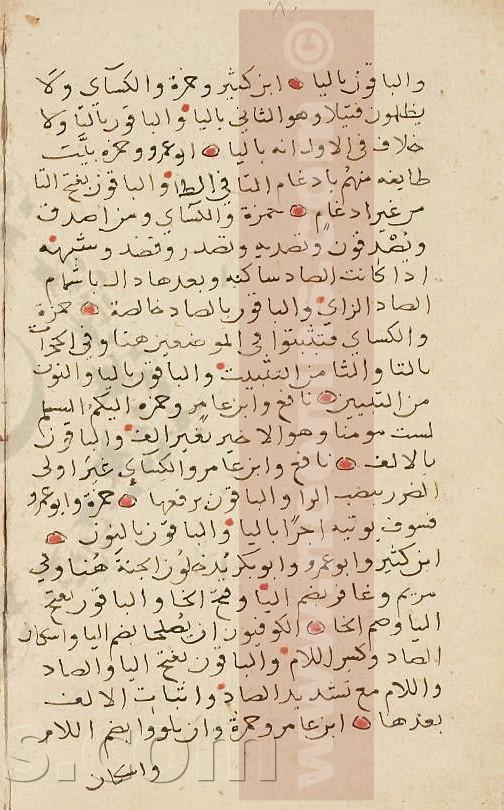 ٨٠
والباقون باليا ابن كثير وحمزة والكساى ولا
يظلمون فتيلا وهو الثاني باليا والباقون بالتا ولا
خلاف في الاول انه باليا ابو عمرو وحمزة بيّت
طايفه منهم بادغام التا في الطا والباقون بفتح التا
من غير ادغام حمزة والكساي ومن اصدق
ويصدفون وتصديه وتصدر وقصد وشبهه
اذا كانت الصاد ساكنه وبعدها دال باشمام
الصاد الزاي والباقون بالصاد خالصة حمزة
والكساي فتثبتوا في الموضعين هنا وفي الحجرات
بالتا والثا من التثبت والباقون باليا والنون
من التبيين نافع وابن عامر وحمزه اليكم السلم
لست مومنا وهو الاخير بغير الف والباقون
بالالف نافع وابن عامر والكساي غير اولى
الضرر بنصب الرا والباقون برفعها حمزة وابو عمرو
فسوف يوتيه اجرا باليا والباقون بالنون
ابن كثير وابو عمرو وابو بكر يدخلون الجنة هنا وفي
مريم وغافر بضم اليا وفتح الخا والباقون بفتح
اليا وضم الخا الكوفيون ان يصلحا بضم اليا واسكان
الصاد وكسر اللام والباقون بفتح اليا والصاد
واللام مع تشديد الصاد واثبات الالف
بعدها ابن عامر وحمزة وان تلووا بضم اللام
واسكان
s.com